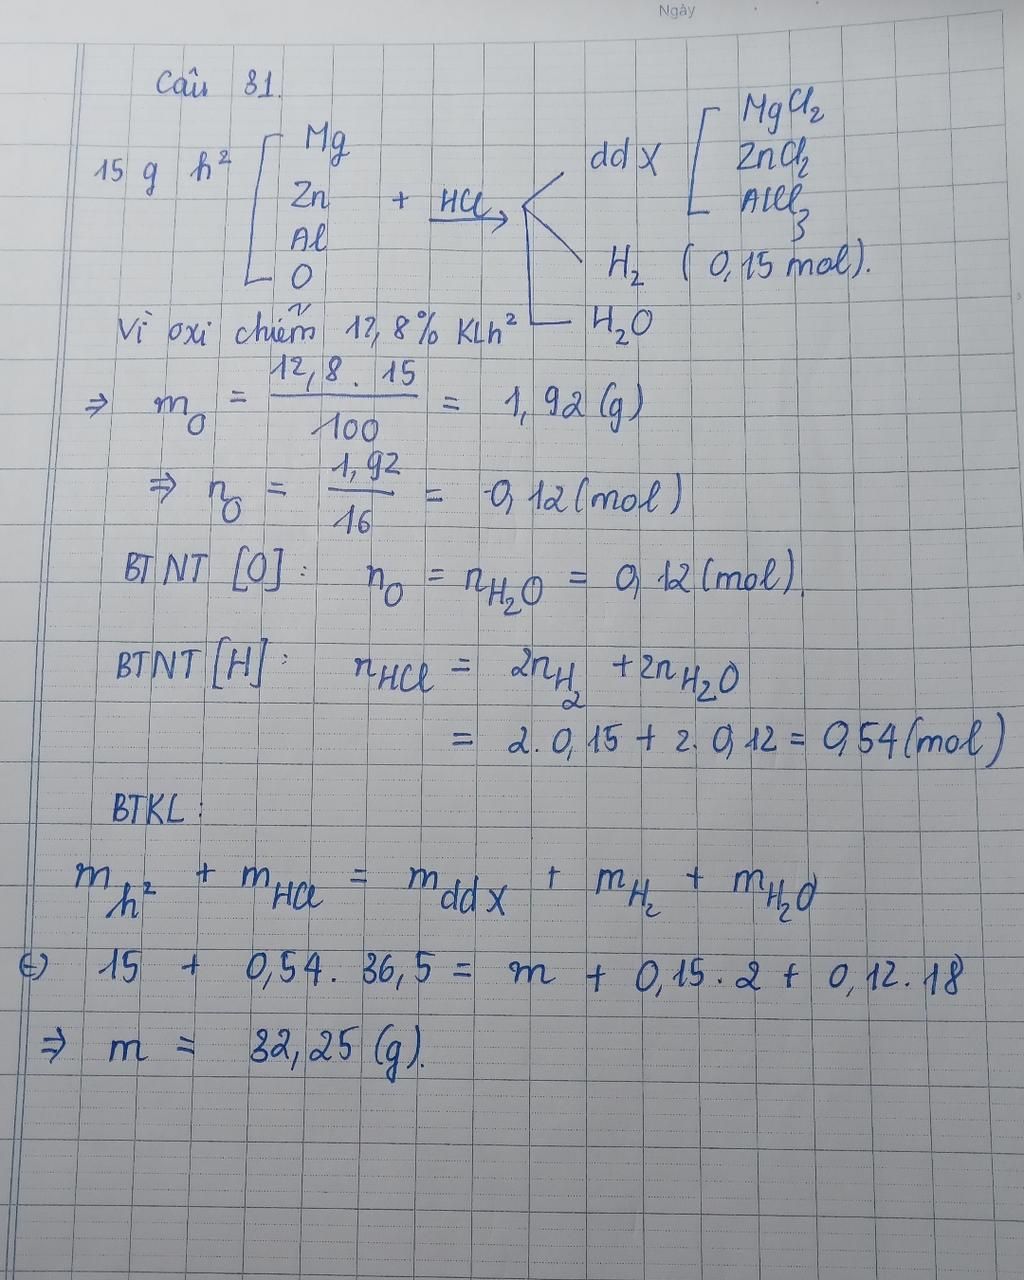 Ngày
Câu 31.
15 g h² [ Mg Zn Al O + HCl → ddX [ MgCl₂ ZnCl₂ AlCl₃
H₂ (0,15 mol).
H₂O
Vì oxi chiếm 12,8% KLh²
⇒ m_O = 12,8 . 15 / 100 = 1,92 (g)
⇒ n_O = 1,92 / 16 = 0,12 (mol)
BTNT [O] : n_O = n_H₂O = 0,12 (mol)
BTNT [H] : n_HCl = 2n_H₂ + 2n_H₂O
= 2. 0,15 + 2. 0,12 = 0,54 (mol)
BTKL :
m_h² + m_HCl = m_ddX + m_H₂ + m_H₂O
(=) 15 + 0,54. 36,5 = m + 0,15. 2 + 0,12. 18
⇒ m = 32,25 (g).